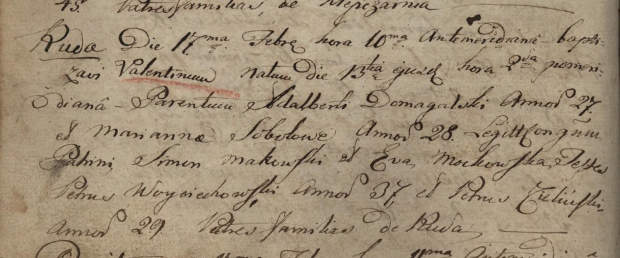 45. Patres familias, de
Ruda Die 17ma Febr hora 10ma Antemeridiana bapti-
zavi Valentinum natum die 13tia ejusd hora 2da pomeri-
diana - Parentum Adalberti Domagalski Annor 27,
et Marianna Sobolowe Annor 28. Legitt Conjum
Patrini Simon Makowski et Eva Mockowska, Testes
Petrus Woyciechowski Annor 37, et Petrus
Annor 29. Patres familias de Ruda,